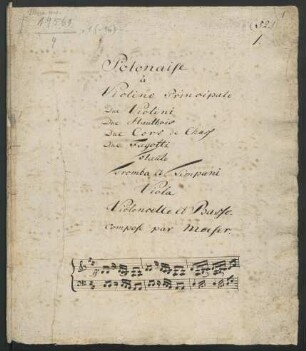 19561
9
(52)
1.
Polonaise
à
Violino Principale
Due Violini
Due Hautbois
Due Cors de Chass
Due Fagotti
Flauto
Tromba et Timpani
Viola
Violoncelle et Basso.
Composé par Maiser